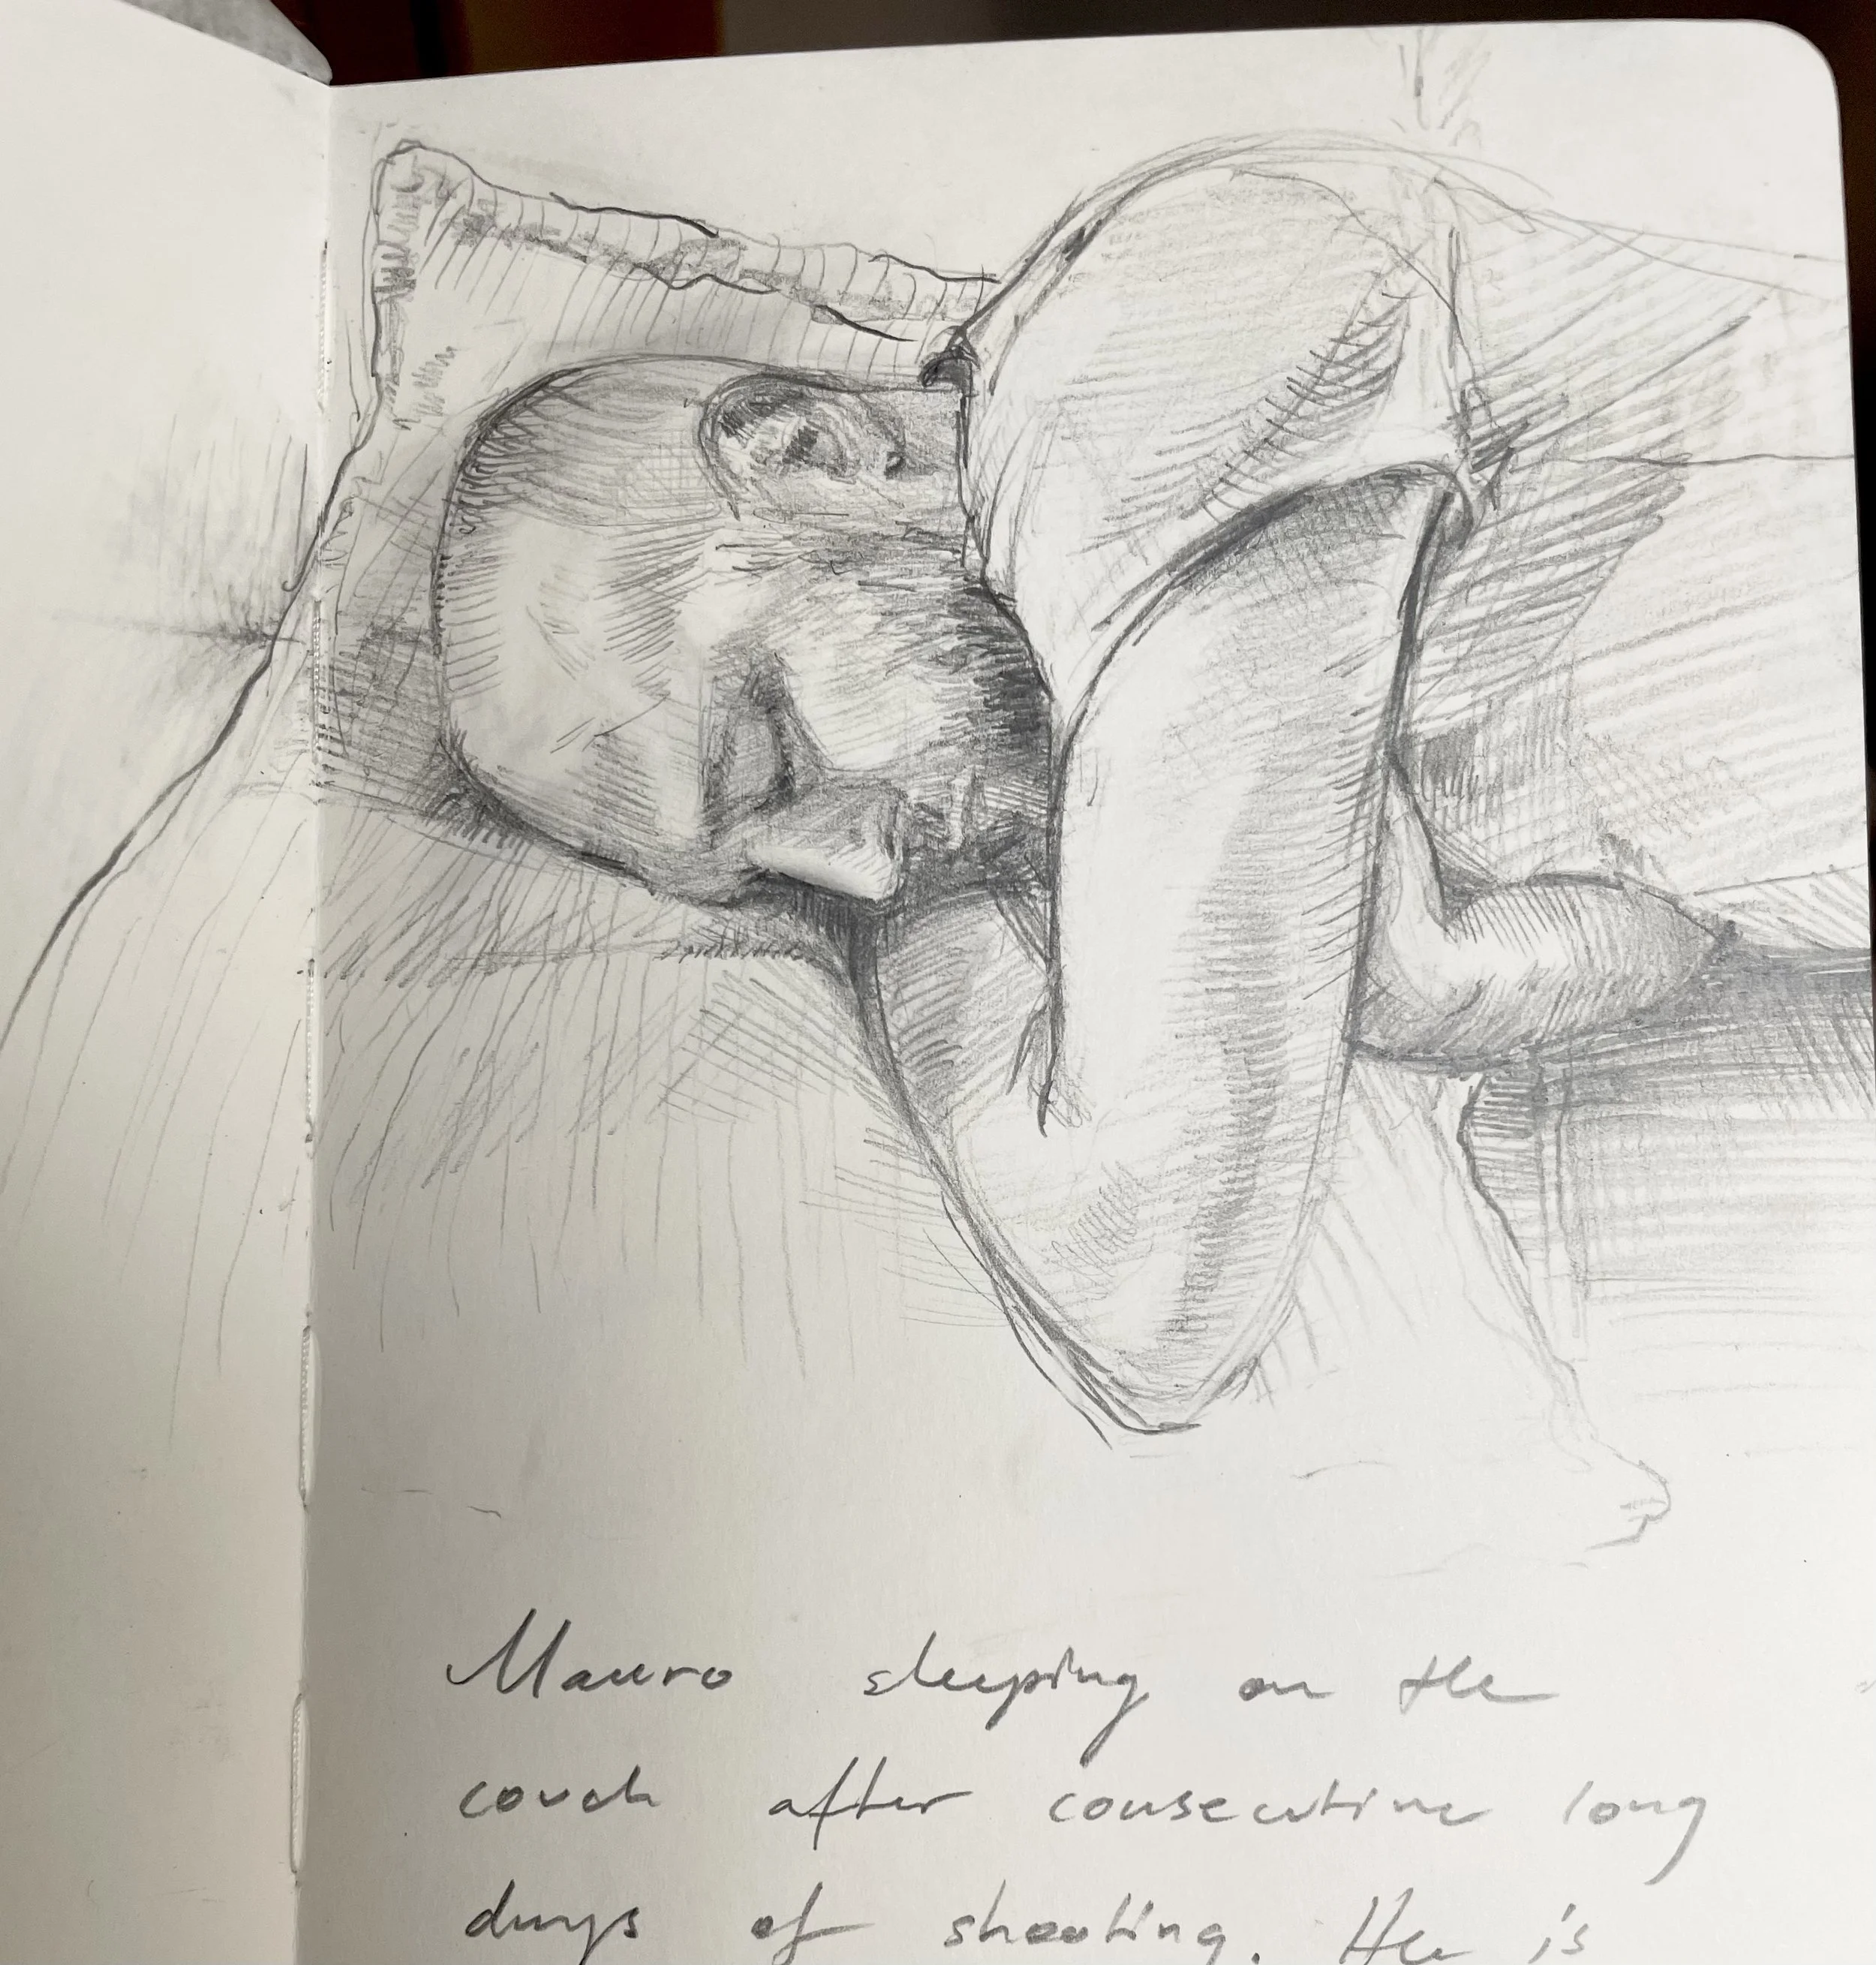 Mauro sleeping on the
couch after consecutive long
days of shooting. He is